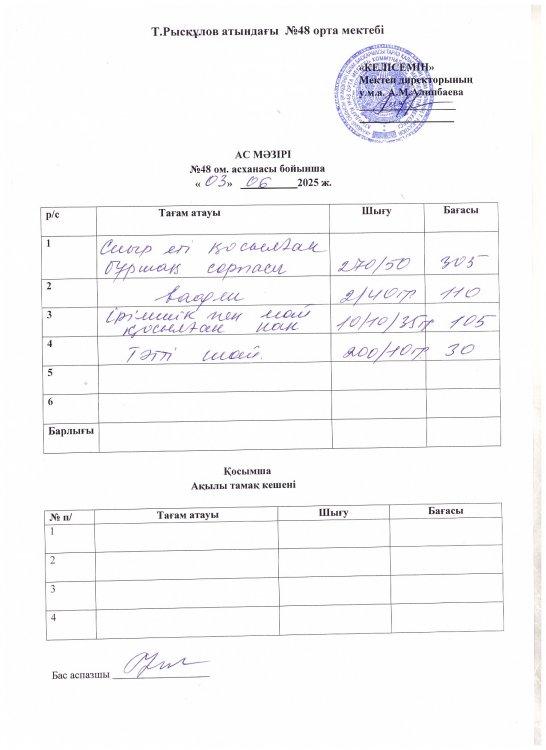 Т.Рысқұлов атындағы №48 орта мектебі
«КЕЛІСЕМІН»
Мектеп директорының
у.м.а. А.М.Алипбаева
АС МӘЗІРІ
№48 ом. асханасы бойынша
« 03 » 06 2025 ж.
р/с Тағам атауы Шығу Бағасы
1 Сиыр еті қосылған
бұршақ сорпасы 270/50 305
2 вафли 2/40гр 110
3 Ірімшік пен май
қосылған нан 10/10/35гр 105
4 Тәтті шай. 200/10гр 30
5
6
Барлығы
Қосымша
Ақылы тамақ кешені
№ п/ Тағам атауы Шығу Бағасы
1
2
3
4
Бас аспазшы